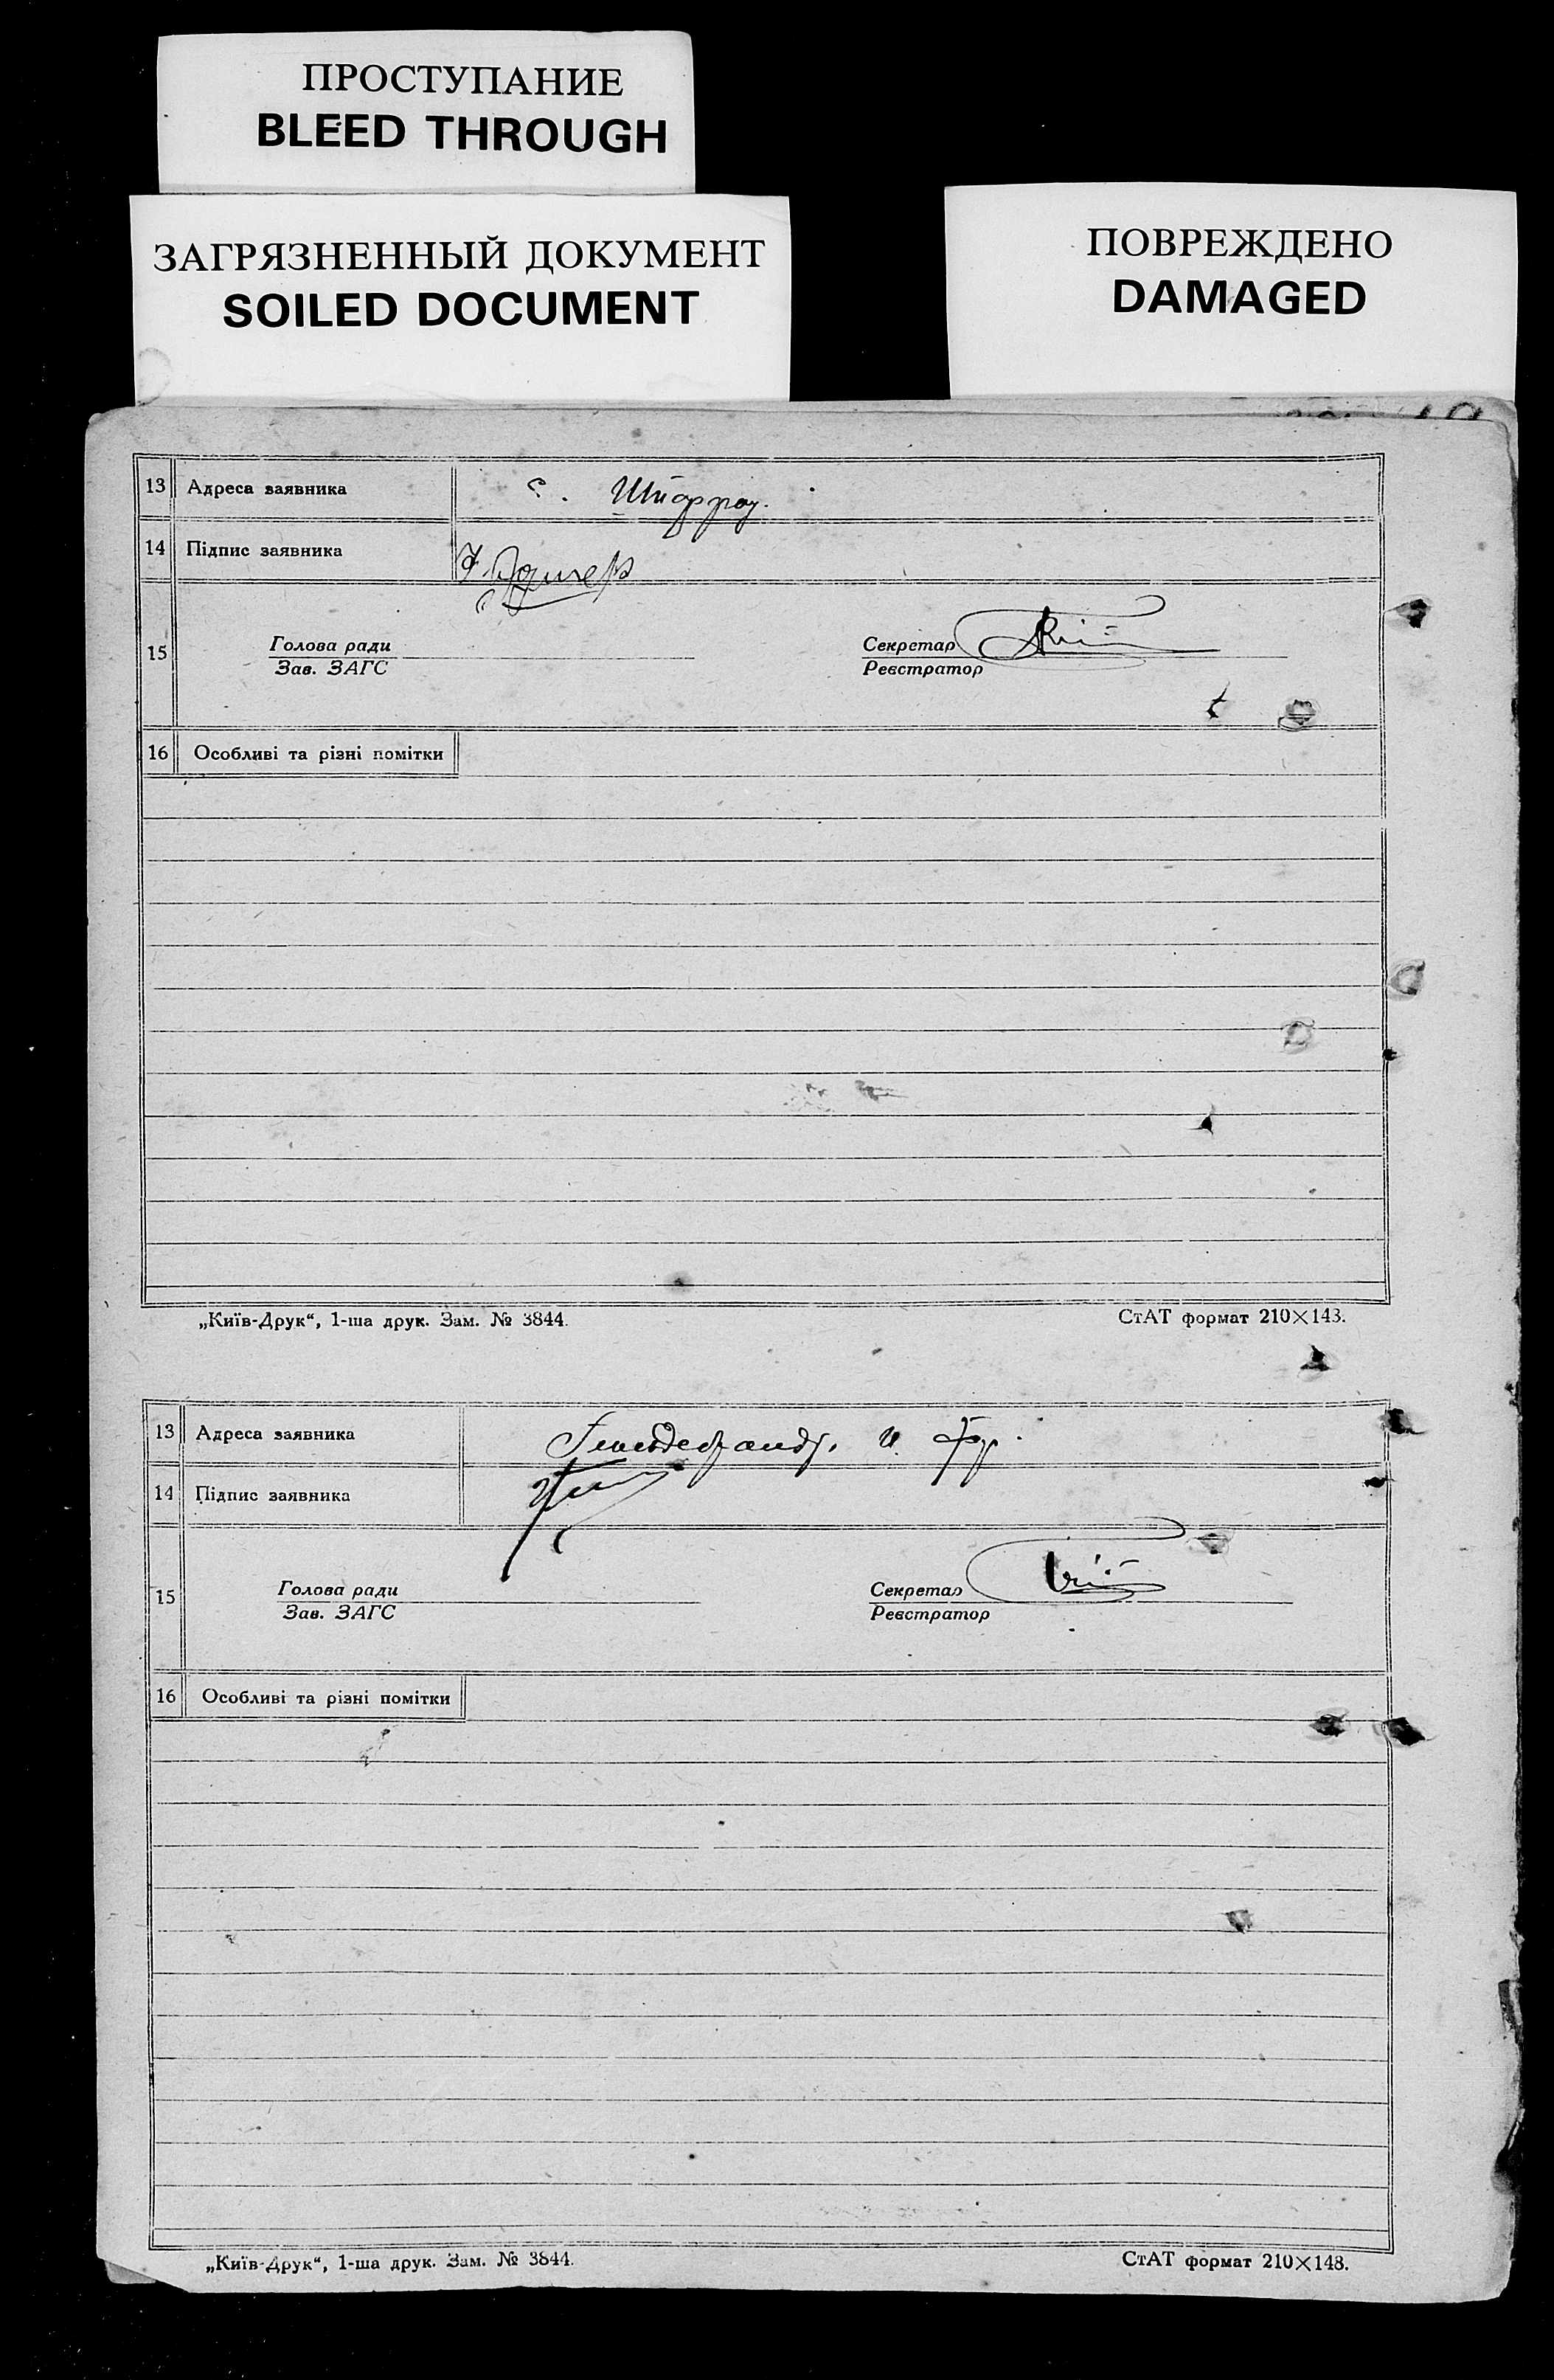 ПРОСТУПАНИЕ
BLEED THROUGH
ЗАГРЯЗНЕННЫЙ ДОКУМЕНТ
SOILED DOCUMENT
ПОВРЕЖДЕНО
DAMAGED
13 Адреса заявника с.
14 Підпис заявника
15 Голова ради Секретар
Зав. ЗАГС Реєстратор
16 Особливі та різні помітки
„Київ-Друк“, 1-ша друк. Зам. № 3844. СтАТ формат 210×143.
13 Адреса заявника
14 Підпис заявника
15 Голова ради Секретар
Зав. ЗАГС Реєстратор
16 Особливі та різні помітки
„Київ-Друк“, 1-ша друк. Зам. № 3844. СтАТ формат 210×148.